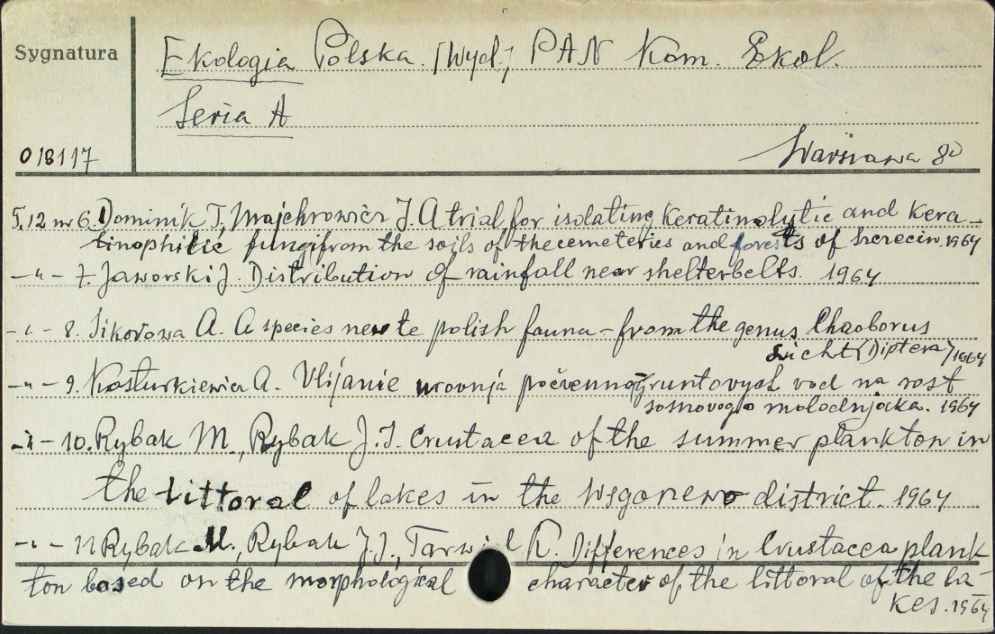 Sygnatura
Ekologia Polska. [Wyd.] PAN Kom. Ekol.
Seria A
018117
Warszawa 8º
T. 12 nr 6. Dominik T, Majchrowicz J. A trial for isolating keratinolytic and kera-
tinophilic fungi from the soils of the cemeteries and forests of Szczecin. 1964
-"- 7. Jaworski J. Distribution of rainfall near shelterbelts. 1964
-"- 8. Sikorowa A. A species new to polish fauna - from the genus Chaoborus
Licht (Diptera) 1964
-"- 9. Kosturkiewicz A. Vlijanie urovnja počvennogruntovych vod na rost
sosnovogo molodnjaka. 1964
-"- 10. Rybak M., Rybak J. I. Crustacea of the summer plankton in
the littoral of lakes in the Węgorzewo district. 1964
-"- 11 Rybak M., Rybak J. J., R. Differences in Crustacea plank
ton based on the morphological character of the littoral of the la-
kes. 1964